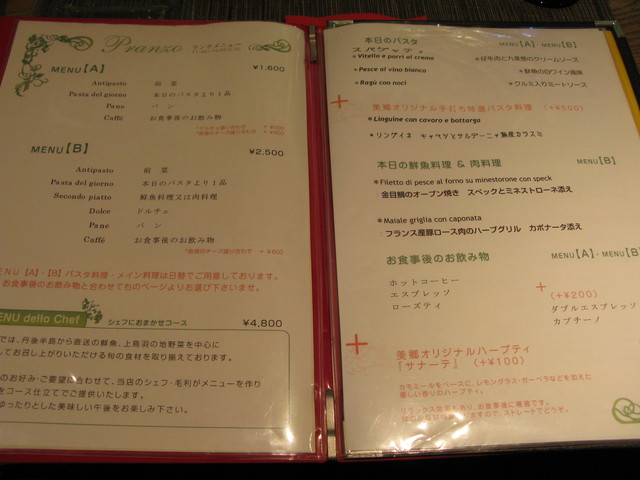 Pranzo ランチメニュー
MENU【A】 ¥1,600
Antipasto 前菜
Pasta del giorno 本日のパスタより1品
Pane パン
Caffè お食事後のお飲み物
MENU【B】 ¥2,500
Antipasto 前菜
Pasta del giorno 本日のパスタより1品
Secondo piatto 鮮魚料理又は肉料理
Dolce ドルチェ
Pane パン
Caffé お食事後のお飲み物
ENU【A】・【B】パスタ料理・メイン料理は日替でご用意しております。
お食事後のお飲み物と合わせて右のページよりお選び下さいませ。
ENU dello Chef シェフにおまかせコース ¥4,800
では、丹後半島から直送の鮮魚、上鳥羽の地野菜を中心に
してお召し上がりいただける旬の食材を取り揃えております。
のお好み・ご要望に合わせて、当店のシェフ・毛利がメニューを作り
をコース仕立てでご提供いたします。
ゆったりとした美味しい午後をお楽しみ下さい。
本日のパスタ MENU【A】・MENU【B】
スパゲッティ
＊Vitello e porri al crema ＊仔牛肉と九条葱のクリームソース
＊Pesce al vino bianco ＊鮮魚の白ワイン風味
＊Ragù con noci ＊クルミ入りミートソース
美郷オリジナル手打ち特選パスタ料理 (+¥500)
＊Linguine con cavoro e bottarga
＊リングイネ キャベツとサルデーニャ島産カラスミ
本日の鮮魚料理 & 肉料理 MENU【B】
＊Filetto di pesce al forno su minestorone con speck
：金目鯛のオーブン焼き スペックとミネストローネ添え
＊Maiale griglia con caponata
：フランス産豚ロース肉のハーブグリル カポナータ添え
お食事後のお飲み物 MENU【A】・MENU【B】
ホットコーヒー
エスプレッソ
ローズティ
(+¥200)
ダブルエスプレッソ
カプチーノ
美郷オリジナルハーブティ
『サナーテ』 (+¥100)
カモミールをベースに、レモングラス・ガーベラなどを加えた
優しい香りのハーブティ。